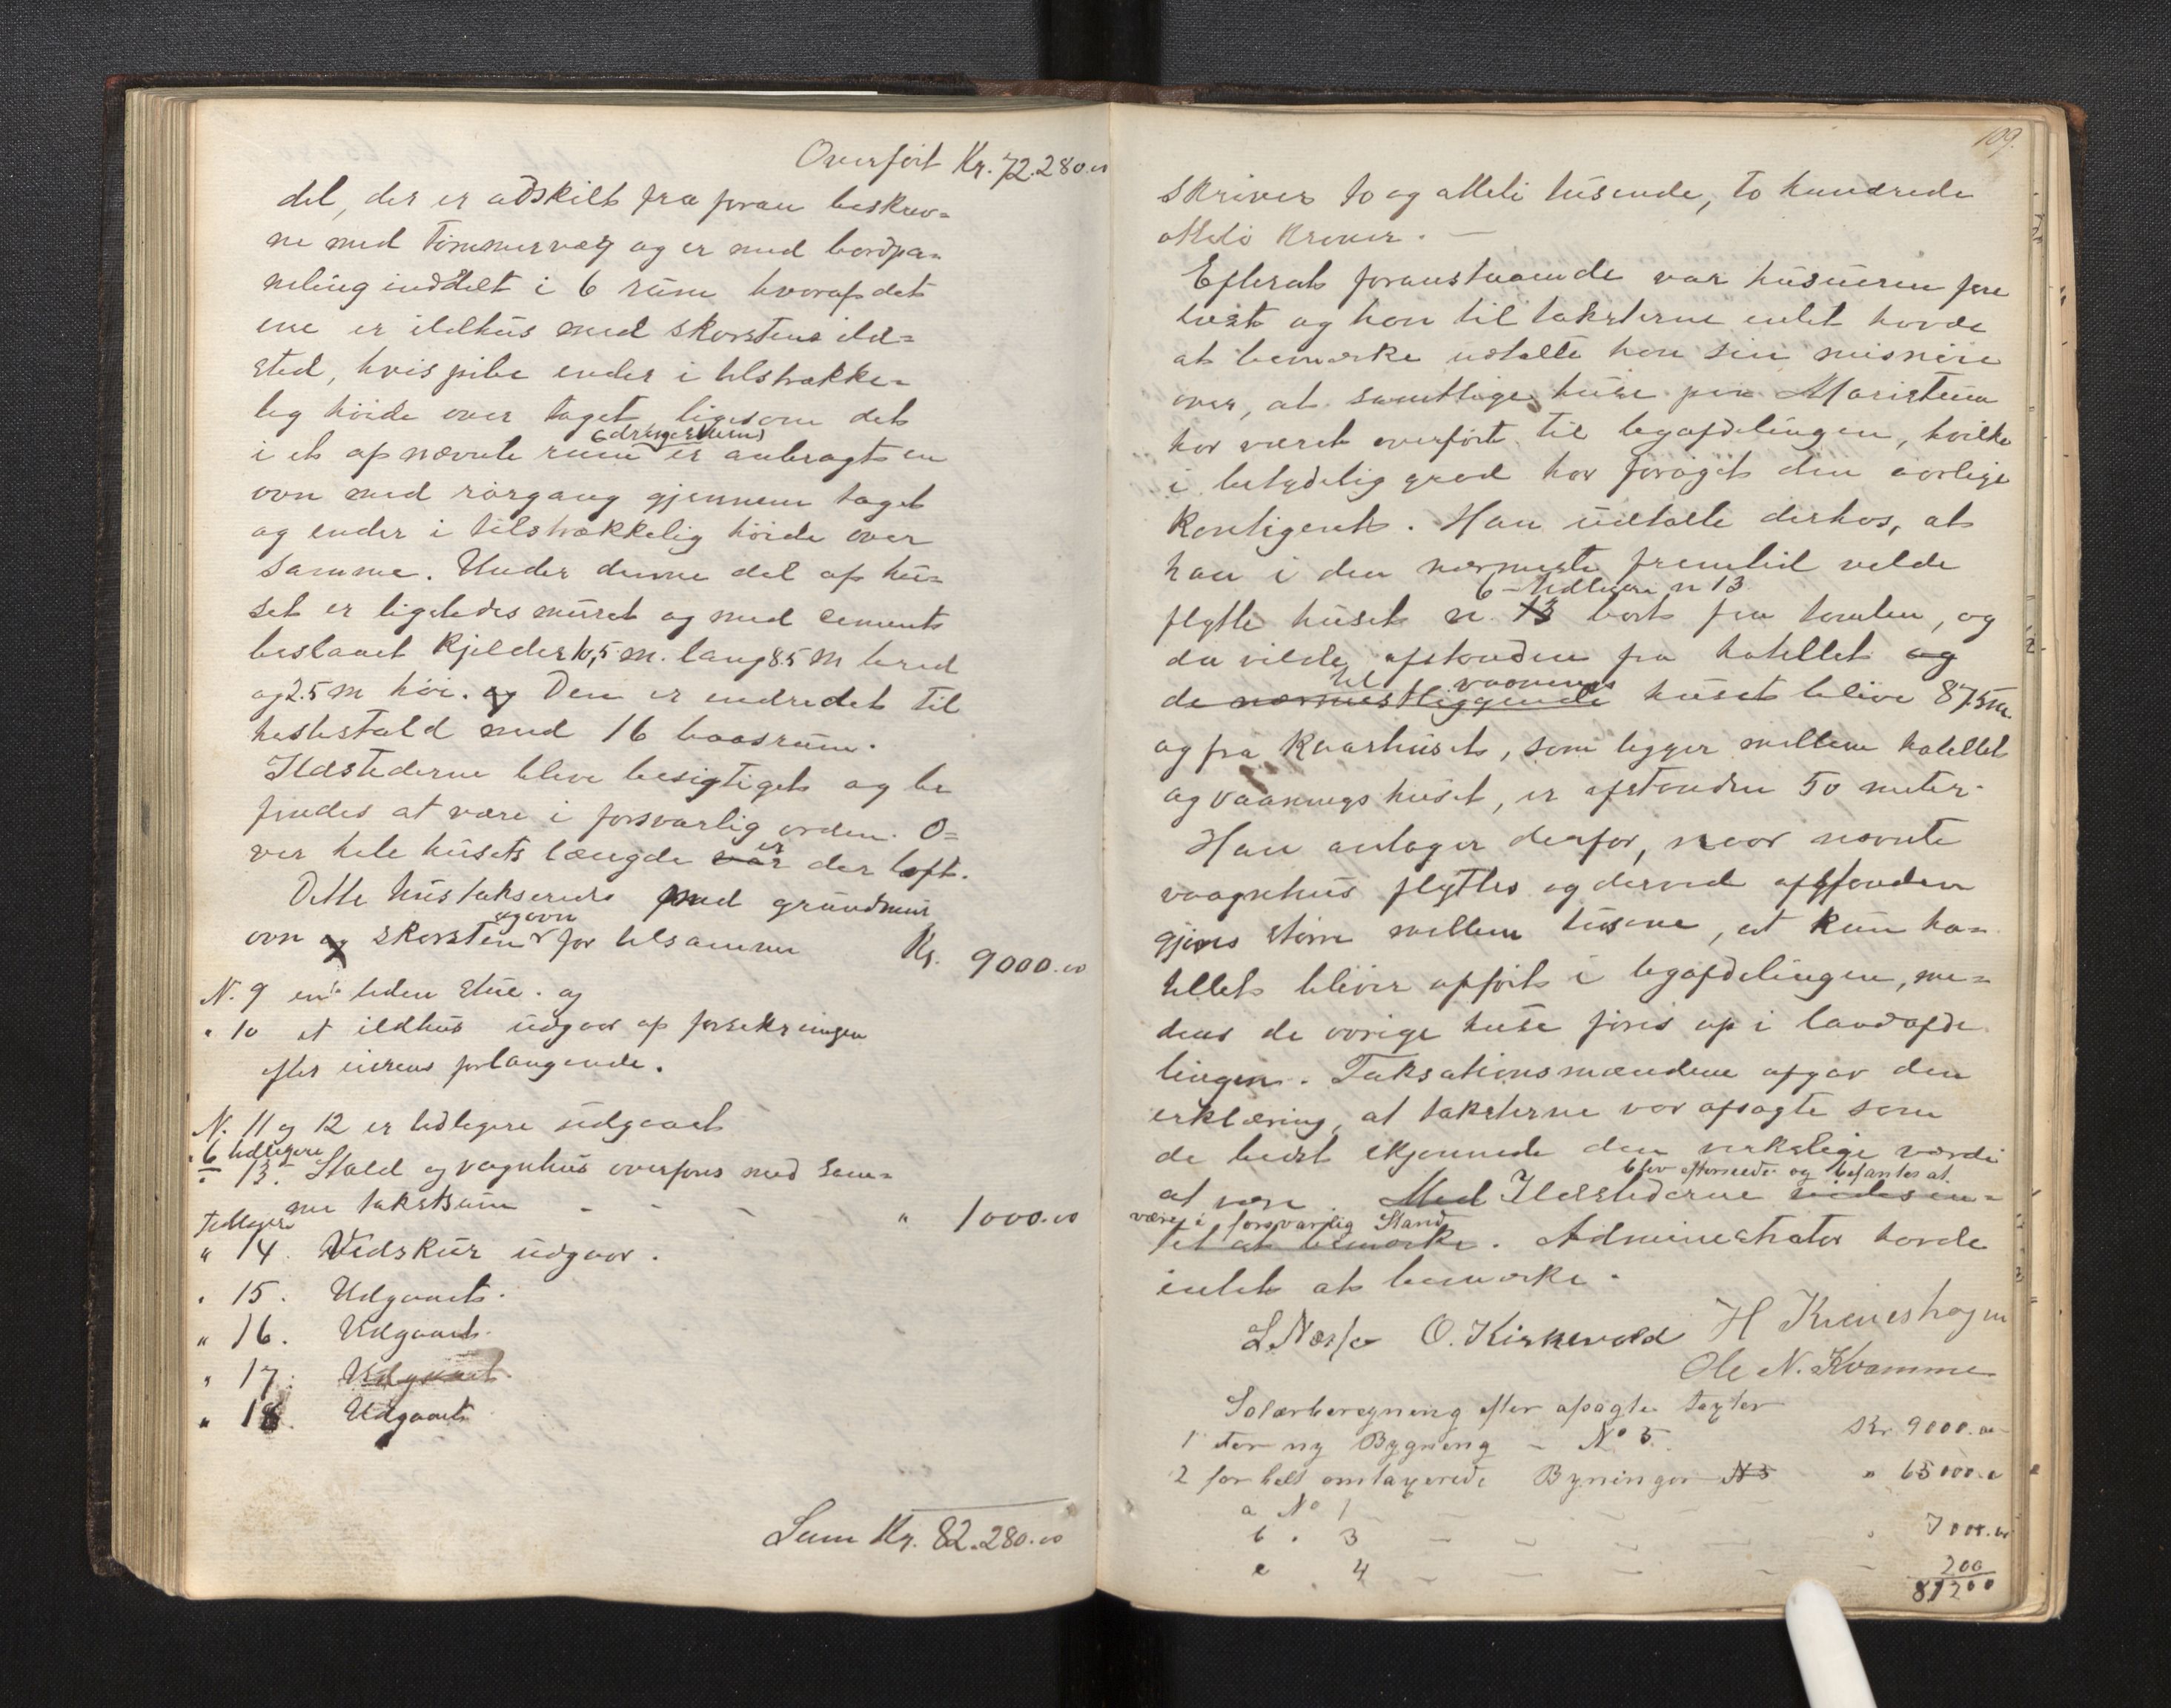 Overført Kr. 72.280.00
del, der er adskilt fra foran beskrev=
ne med Tømmervæg og er med bordpa=
neling inddelt i 6 rum hvoraf det
ene er ildhus med skorstens ild=
sted, hvis pibe ender i tilstrække=
lig høide over taget ligesom det
i et af nævnte rum (drengerum) er anbragt en
ovn med rørgang gjennem taget
og ender i tilstrækkelig høide over
samme. Under denne del af hu=
set er ligeledes muret og med cement
beslaaet kjelder 10,5 m. lang 8.5 m bred
og 2.5 m høi. og Den er indredet til
hestestald med 16 baasrum.
Ildstederne blev besigtiget og be
findes at være i forsvarlig orden. O=
ver hele husets længde var er der loft.
Dette hus takseredes med grundmur
ovn og skorsten og ovn for tilsammen Kr. 9000.00
N. 9 en liden stue. og
" 10 et ildhus udgaar af forsikringen
efter eierens forlangende.
N. 11 og 12 er tidligere udgaaet
" 6 tidligere
" 13. Stald og vognhus overføres med sam=
me takstsum - - - - " 1000.00
Tidligere
" 14. Vedskur udgaar.
" 15. Udgaaet.
" 16. Udgaaet.
" 17. Udgaaet.
" 18. Udgaaet.
Sum Kr. 82.280.00
109.
skriver to og otteti tusende, to hundrede
otteti kroner. —
Efterat foranstaaende var huseieren fore
læst og han til taksterne intet havde
at bemærke udtalte han sin misnøie
over, at samtlige huse paa Maristuen
har været overført til byafdelingen, hvilke
i betydelig grad har forøget den aarlige
Kontigent. Han udtalte derhos, at
han i den nærmeste fremtid vilde
6 - tidligere n 13
flytte huset n. 13 bort fra tomten, og
da vilde afstanden fra hotellet og
til vaanings
de nærmestliggende huset blive 87.5 m.
og fra Kaarhuset, som ligger mellem hotellet
og vaaningshuset, er afstanden 50 meter.
Han antager derfor, naar nævnte
vaagnhus flyttes og derved afstanden
gjøres større mellem husene, at kun ho=
tellet bliver opført i byafdelingen, me=
dens de øvrige huse føres op i landafde
lingen. Taksationsmændene afgav den
erklæring, at taksterne var afsagte som
de bedst skjønnede den virkelige værdi
blev efterseede og befantes at
at være. Med Ildstederne
være i forsvarlig Stand
tet at bemærke. Administrator havde
intet at bemærke.
L. Næsse O. Kirkevold H Kvieshagen
Ole N. Kvamme
Salærberegning efter afsagte taxter
1 for ny Bygning - No 5. Kr. 9000.00
2 for helt omtaxerede Byninger N 5 " 65000.0
a No 1
b " 3 - - - - " 7000.00
c 4 - - - - - - 200
81200